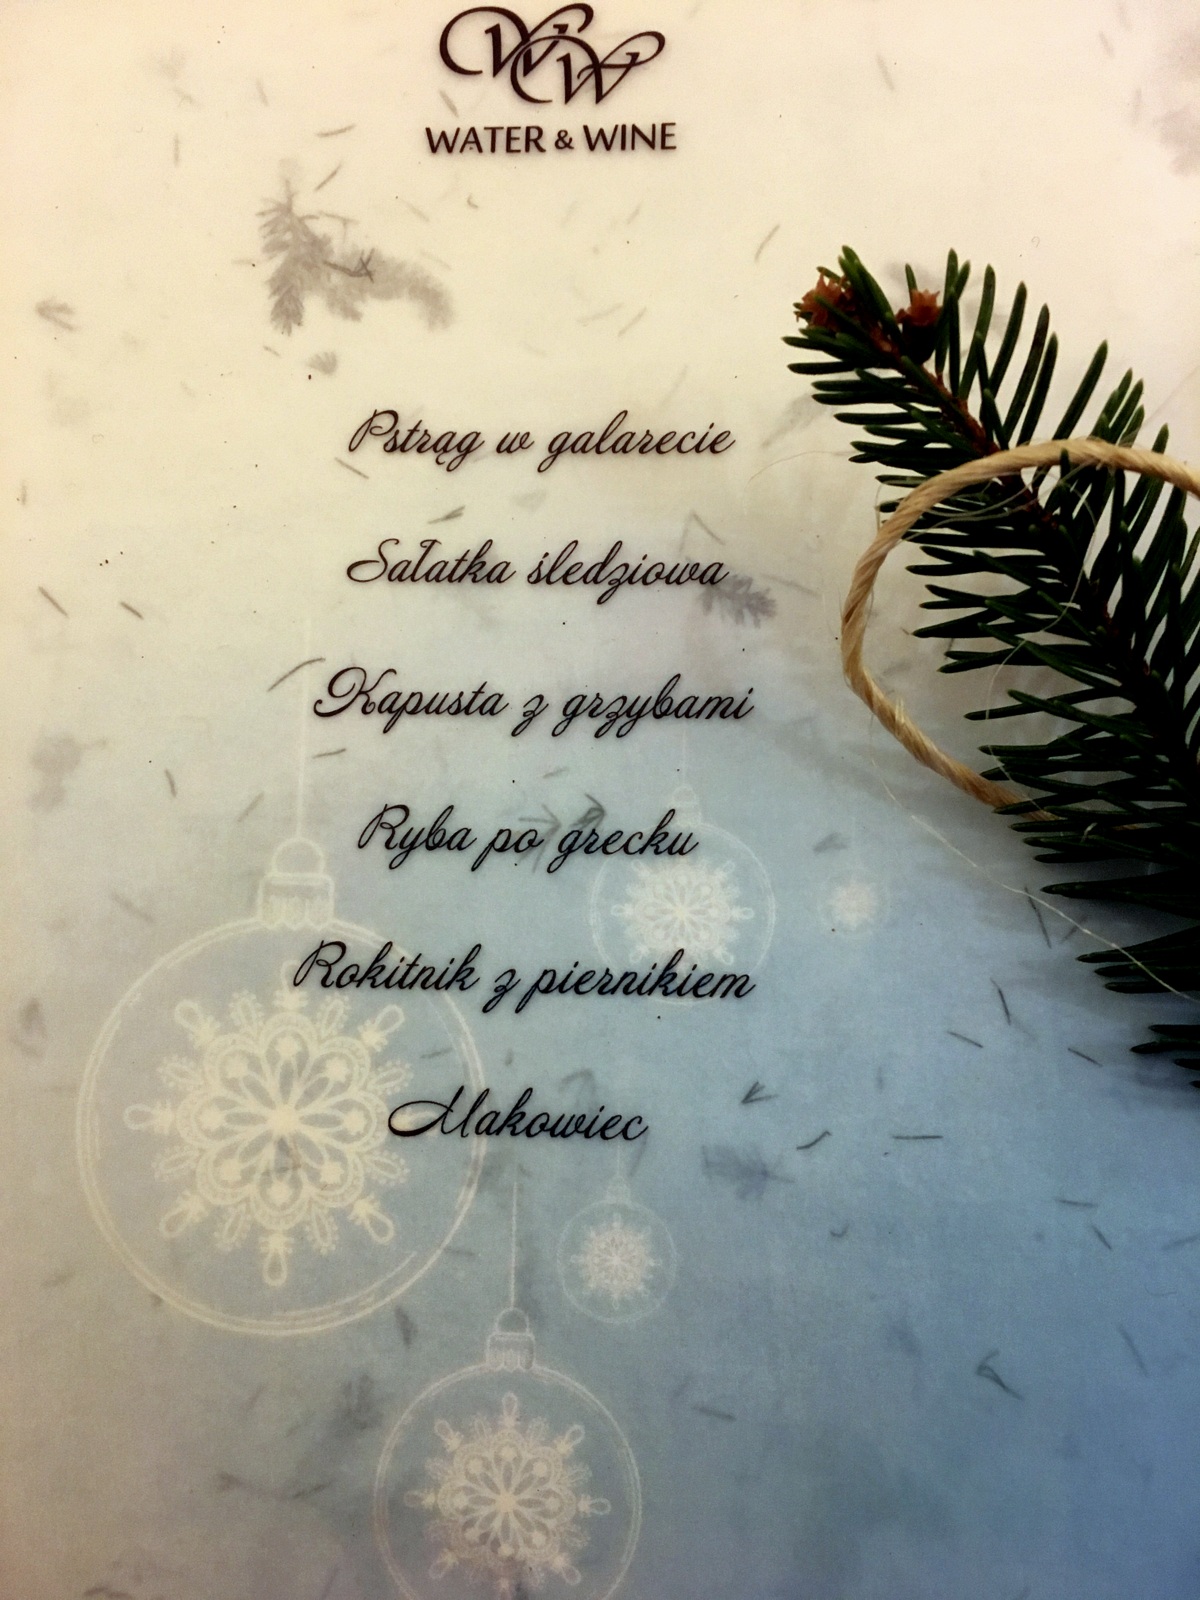 WW
WATER & WINE
Pstrąg w galarecie
Sałatka śledziowa
Kapusta z grzybami
Ryba po grecku
Rokitnik z piernikiem
Makowiec